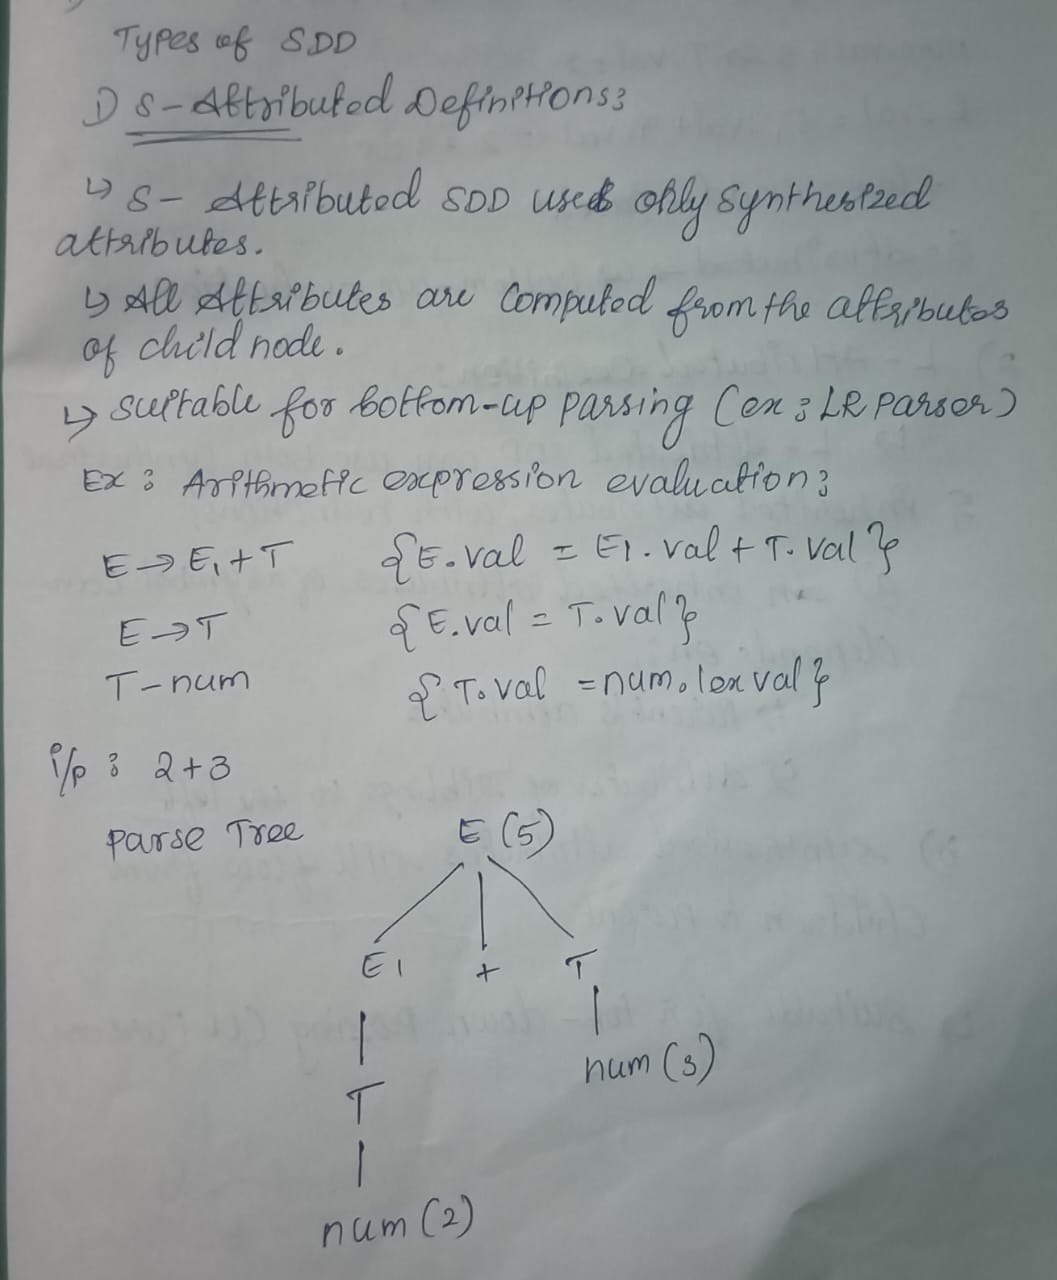 Types of SDD
1) S-Attributed Definitions:
↳ S- Attributed SDD uses only synthesized
attributes.
↳ All Attributes are Computed from the attributes
of child node.
↳ suitable for bottom-up parsing (ex: LR parser)
Ex: Arithmetic expression evaluation:
E → E1 + T {E.val = E1.val + T.val}
E → T {E.val = T.val}
T - num {T.val = num.lexval}
i/p : 2+3
parse Tree E (5)
E1 + T
num (3)
T
num (2)